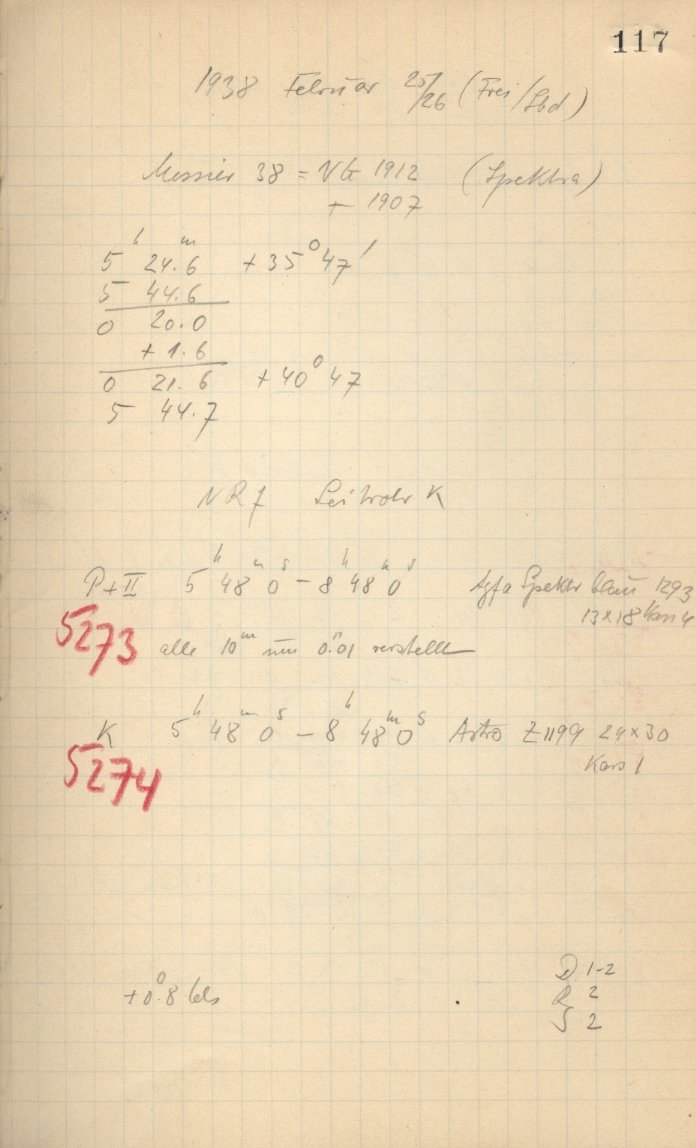 117
1938 Februar 25/26 (Frei/Sbd)
Messier 38 = NG 1912 (Spektra)
+ 1907
5ʰ 24.6ᵐ +35° 47'
5 44.6
0 20.0
+ 1.6
0 21.6 +40° 47
5 44.7
NR 7 Leitrohr K
P+II 5ʰ 48ᵐ 0ˢ – 8ʰ 48ᵐ 0ˢ Agfa Spektr blau 1293
13x18 Kass 4
5273 alle 10ᵐ um 0.01 verstellt
K 5ʰ 48ᵐ 0ˢ – 8ʰ 48ᵐ 0ˢ Astro Z1199 24x30
Kass 1
5274
D 1-2
+0°.8 Cels R 2
S 2